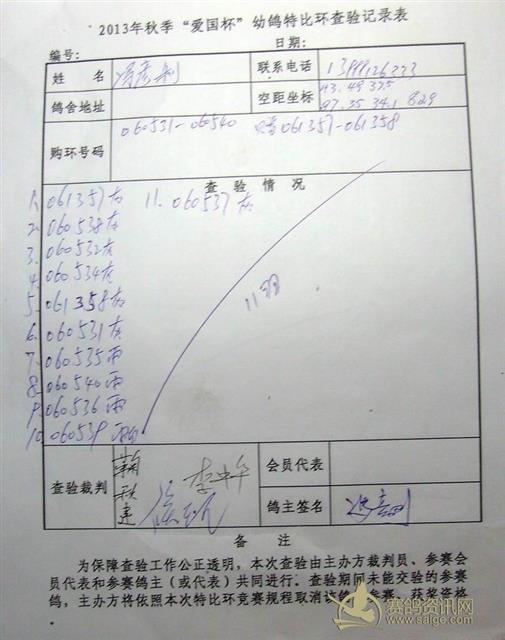 2013年秋季“爱国杯”幼鸽特比环查验记录表
编号： 日期：
姓名 联系电话
鸽舍地址 空距坐标 829
购环号码 060531-060540 061357-061358
查验情况
1. 061357灰 11. 060537灰
2. 060538灰
3. 060532灰
4. 060534灰
5. 061358灰
6. 060531灰
7. 060535雨
8. 060540雨
9. 060536雨
10. 060539
11羽
查验裁判 会员代表
鸽主签名
备注
为保障查验工作公正透明，本次查验由主办方裁判员、参赛会
员代表和参赛鸽主（或代表）共同进行。查验期间未能交验的参赛
鸽，主办方将依照本次特比环竞赛规程取消该鸽参赛、获奖资格
赛鸽资讯网
www.saige.com